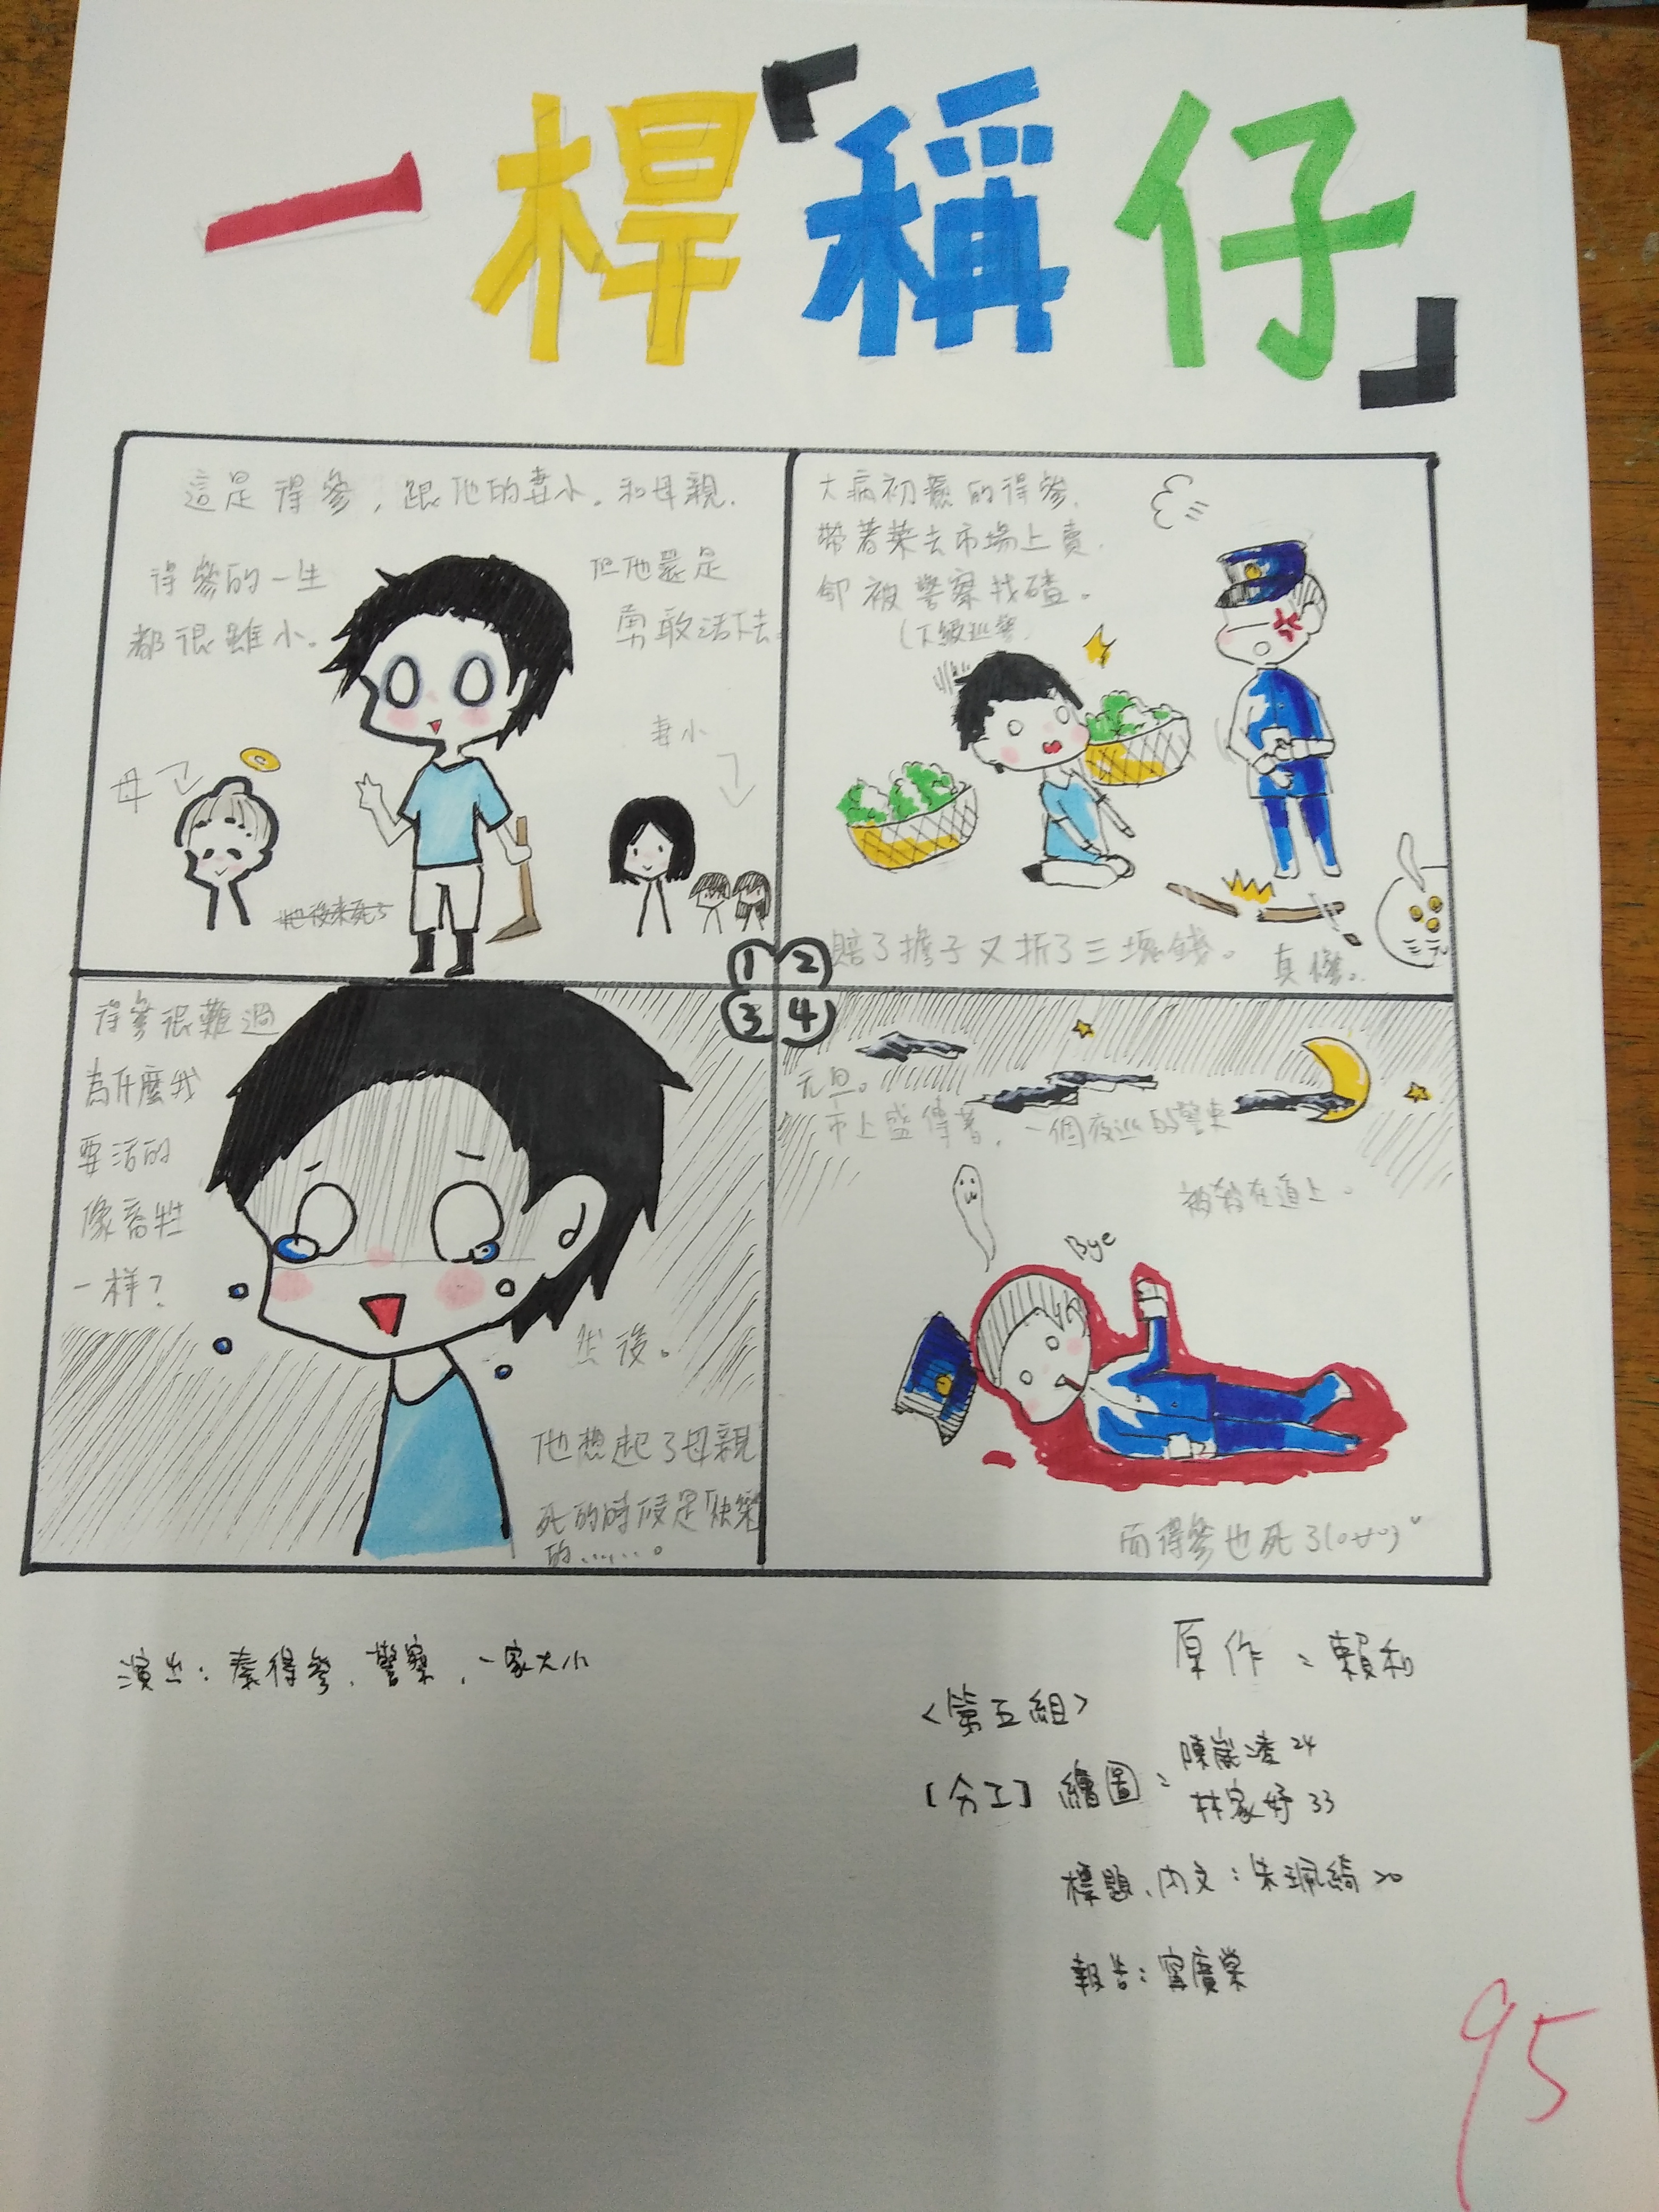 一桿「稱仔」
這是得參，跟他的妻小。和母親.
得參的一生
都很雖小。
但他還是
勇敢活下去.
母
妻小
她後來死了
大病初癒的得參.
帶著菜去市場上賣.
卻被警察找碴。
(下級巡警)
賠了擔子又折了三塊錢。
真慘..
三元
1
2
3
4
得參很難過
為什麼我
要活的
像畜牲
一樣？
然後。
他想起了母親
死的時候是「快樂」
的......。
元旦。
市上盛傳著，一個夜巡的警吏
被殺在道上。
Bye
而得參也死了(○∀○)"
演出：秦得參、警察、一家大小
原作：賴和
<第五組>
[分工] 繪圖：陳嵐凌 24
林家妤 33
標題、內文：朱珮綺 20
報告：廣棠
95